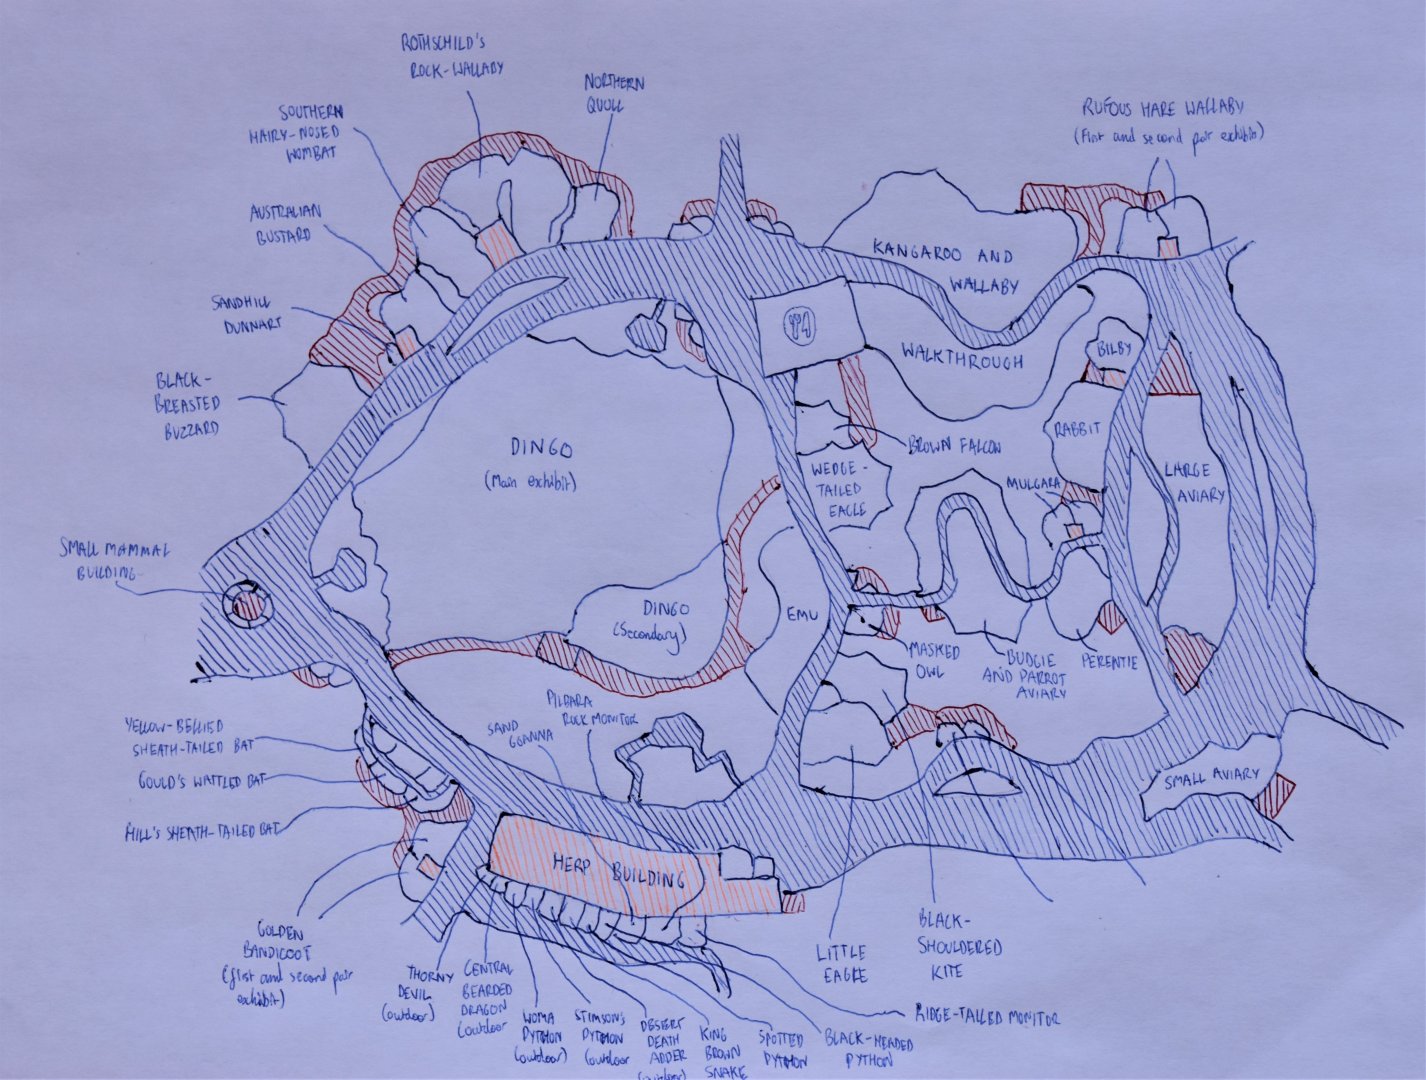 ROTHSCHILD'S
ROCK-WALLABY
NORTHERN
QUOLL
SOUTHERN
HAIRY-NOSED
WOMBAT
RUFOUS HARE WALLABY
(First and second pair exhibit)
AUSTRALIAN
BUSTARD
KANGAROO AND
WALLABY
WALKTHROUGH
SANDHILL
DUNNART
BILBY
BLACK-
BREASTED
BUZZARD
DINGO
(Main exhibit)
BROWN FALCON
RABBIT
WEDGE-
TAILED
EAGLE
MULGARA
LARGE
AVIARY
SMALL MAMMAL
BUILDING
DINGO
(Secondary)
EMU
MASKED
OWL
BUDGIE
AND PARROT
AVIARY
PERENTIE
PILBARA
ROCK MONITOR
SAND
GOANNA
YELLOW-BELLIED
SHEATH-TAILED BAT
GOULD'S WATTLED BAT
HILL'S SHEATH-TAILED BAT
SMALL AVIARY
HERP BUILDING
GOLDEN
BANDICOOT
(first and second pair
exhibit)
THORNY
DEVIL
(outdoor)
CENTRAL
BEARDED
DRAGON
(outdoor
WOMA
PYTHON
(outdoor)
STIMSON'S
PYTHON
(outdoor
DESERT
DEATH
ADDER
(outdoor)
KING
BROWN
SNAKE
SPOTTED
PYTHON
BLACK-HEADED
PYTHON
RIDGE-TAILED MONITOR
LITTLE
EAGLE
BLACK-
SHOULDERED
KITE